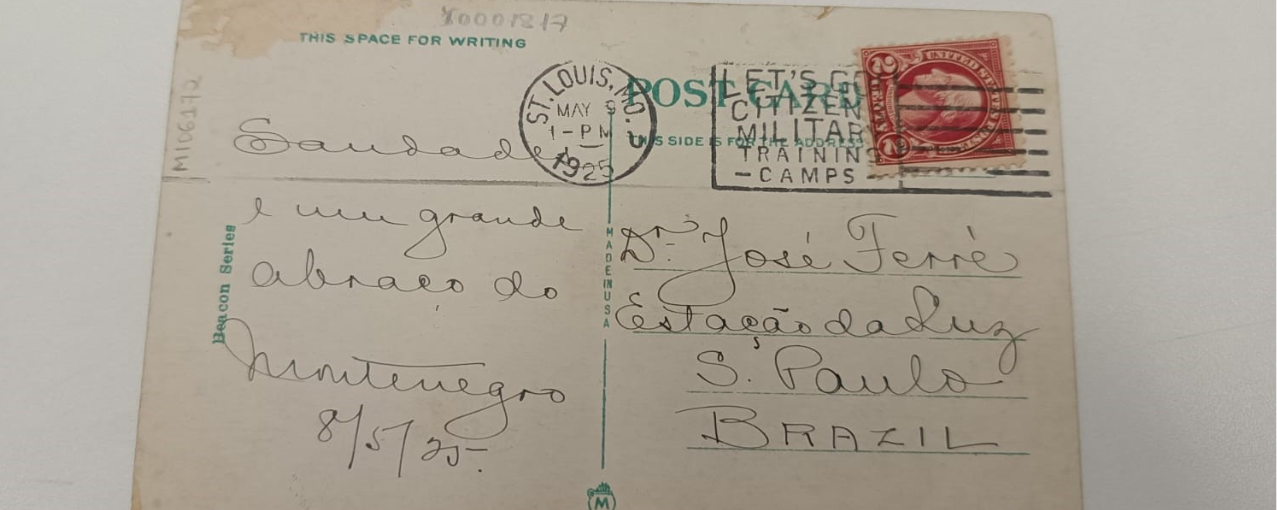 X0001217
THIS SPACE FOR WRITING
MIC6172
ST. LOUIS, MO.
MAY 9
1-PM
1925
POST CARD
THIS SIDE IS FOR THE ADDRESS
LET'S GO
CITIZENS
MILITARY
TRAINING
-CAMPS-
UNITED STATES
2 2
Saudades
e um grande
abraço do
Montenegro
8/5/25.
Beacon Series
MADE IN USA
Dr. José Ferré
Estação da Luz
S. Paulo
BRAZIL
M